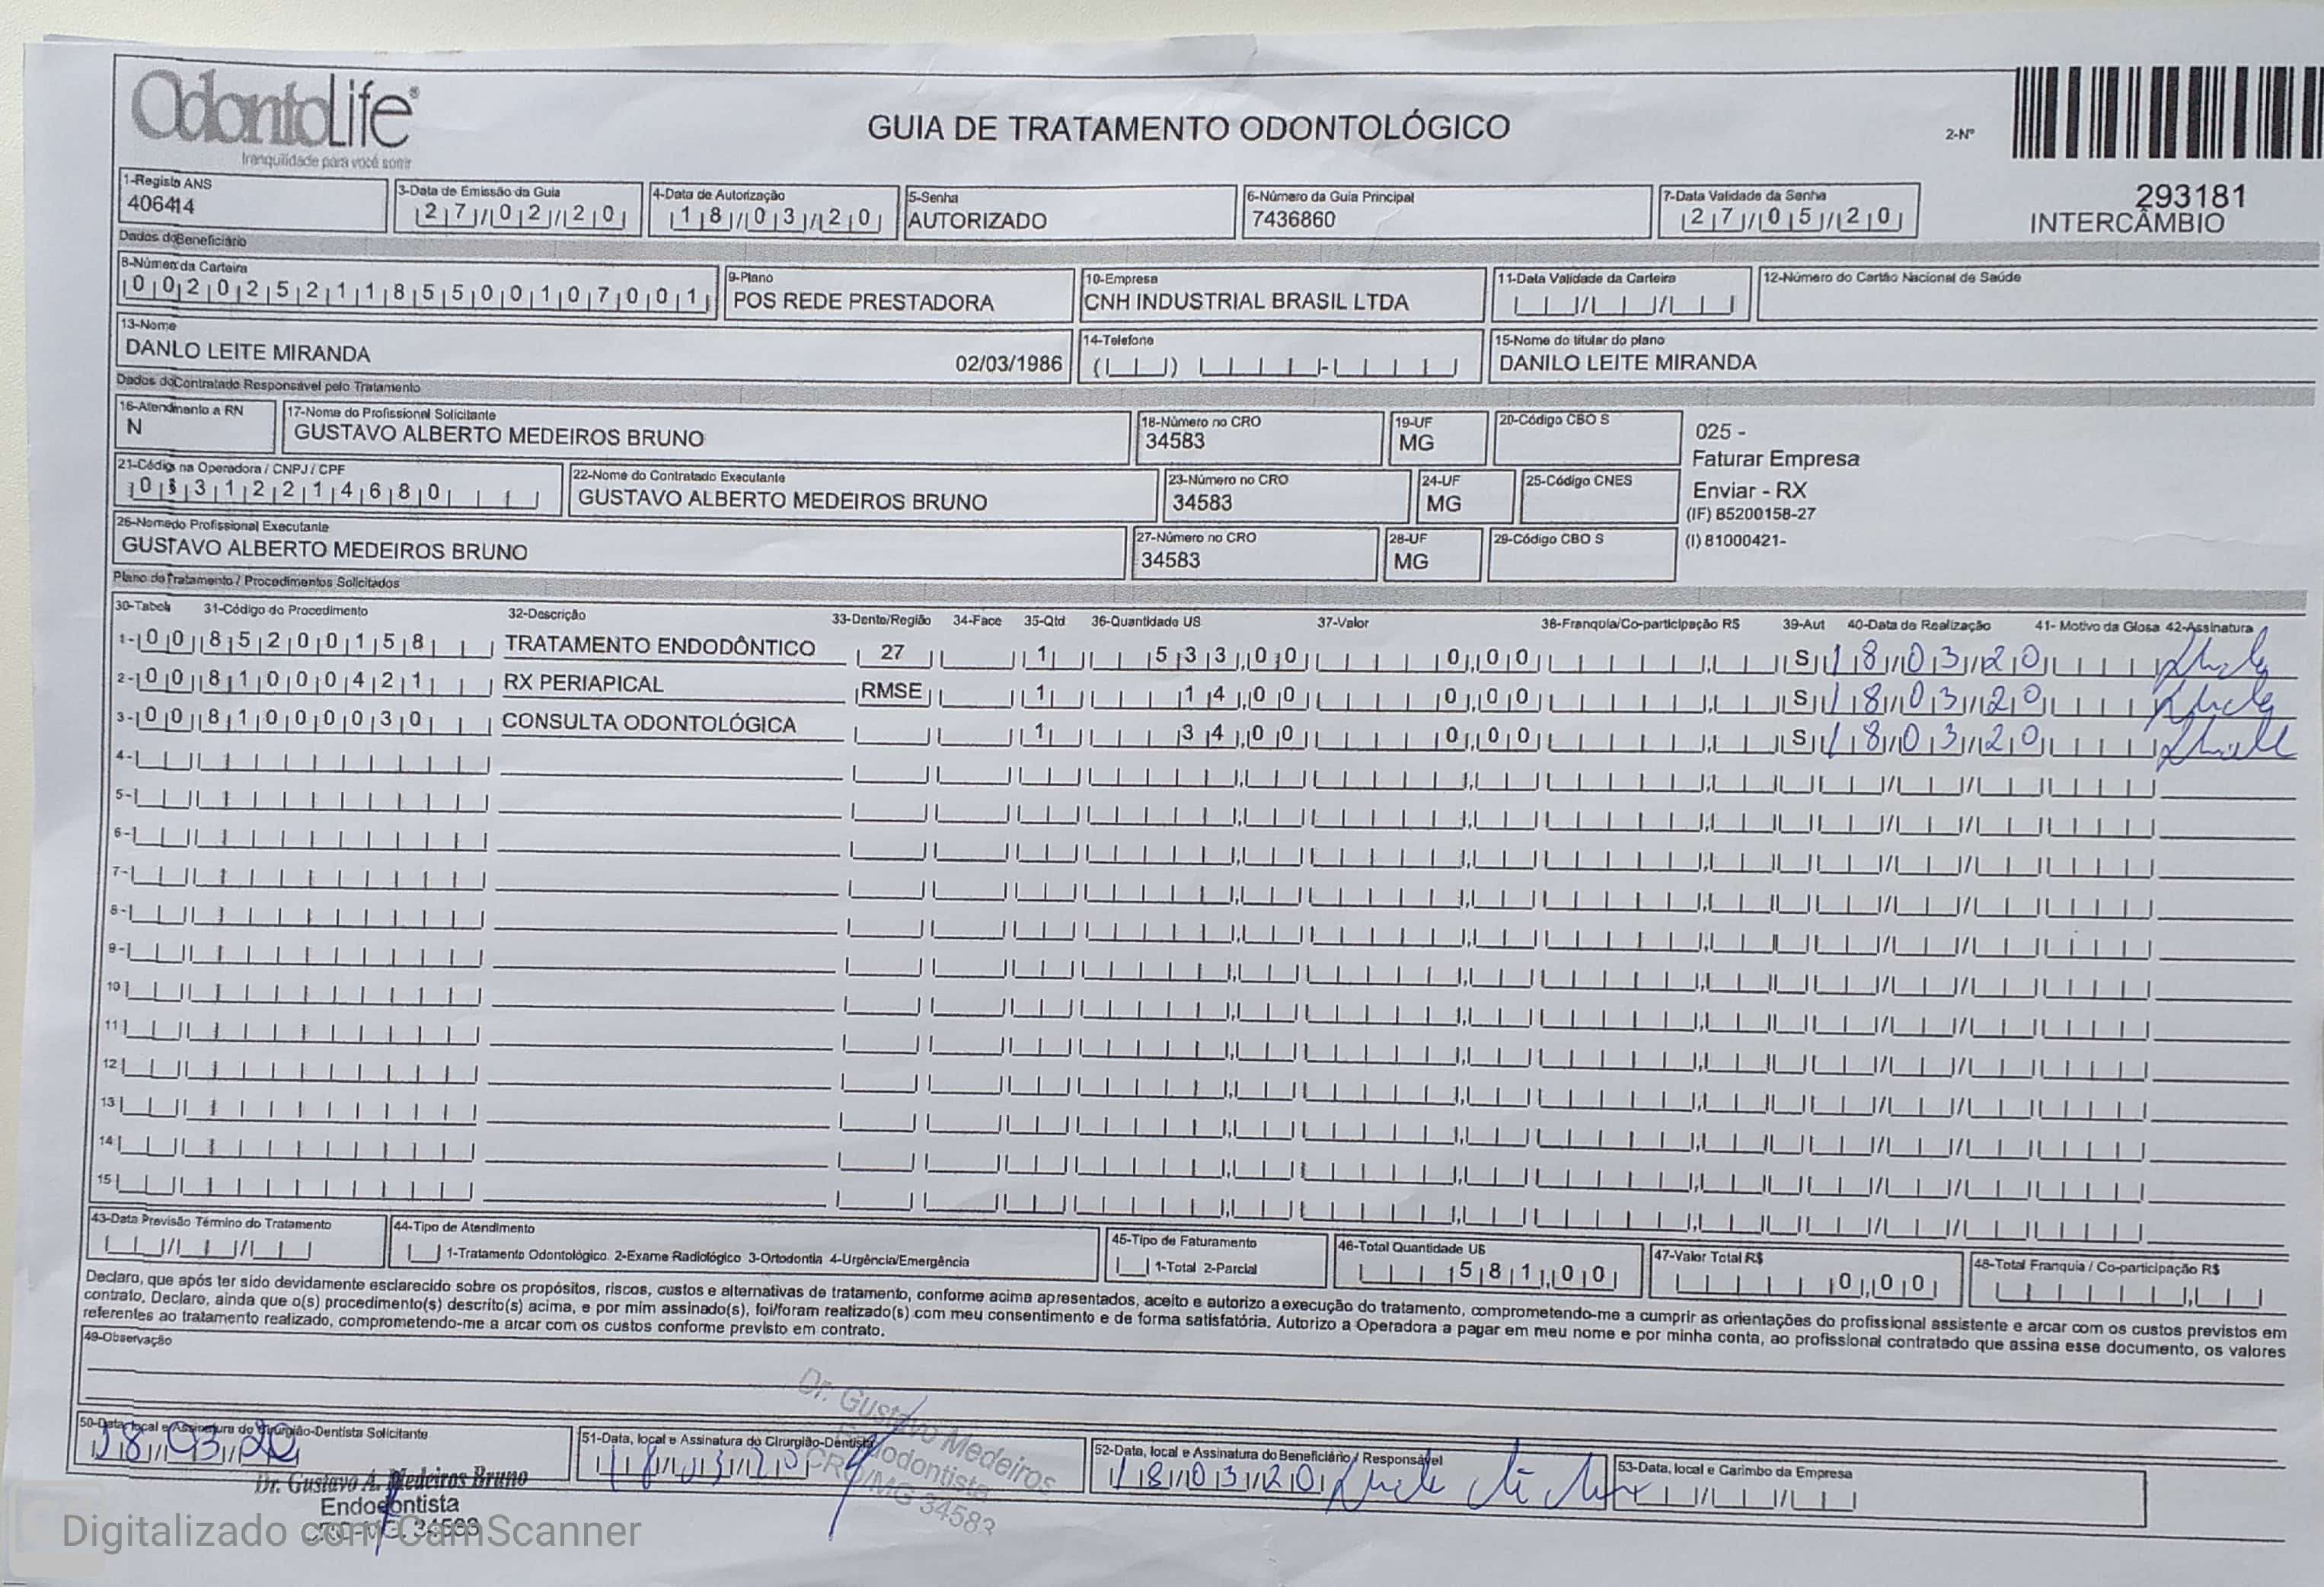 OdontoLife®
tranquilidade para você sorrir
GUIA DE TRATAMENTO ODONTOLÓGICO
2-Nº
293181
INTERCÂMBIO
1-Registo ANS
406414
3-Data de Emissão da Guia
27/02/20
4-Data de Autorização
18/03/20
5-Senha
AUTORIZADO
6-Número da Guia Principal
7436860
7-Data Validade da Senha
27/05/20
Dados do Beneficiário
8-Número da Carteira
00202521185500107001
9-Plano
POS REDE PRESTADORA
10-Empresa
CNH INDUSTRIAL BRASIL LTDA
11-Data Validade da Carteira
12-Número do Cartão Nacional de Saúde
13-Nome
DANLO LEITE MIRANDA 02/03/1986
14-Telefone
15-Nome do titular do plano
DANILO LEITE MIRANDA
Dados do Contratado Responsável pelo Tratamento
16-Atendimento a RN
N
17-Nome do Profissional Solicitante
GUSTAVO ALBERTO MEDEIROS BRUNO
18-Número no CRO
34583
19-UF
MG
20-Código CBO S
025 -
Faturar Empresa
Enviar - RX
(IF) 85200158-27
(I) 81000421-
21-Código na Operadora / CNPJ / CPF
22-Nome do Contratado Executante
GUSTAVO ALBERTO MEDEIROS BRUNO
23-Número no CRO
34583
24-UF
MG
25-Código CNES
26-Nome do Profissional Executante
GUSTAVO ALBERTO MEDEIROS BRUNO
27-Número no CRO
34583
28-UF
MG
29-Código CBO S
Plano de Tratamento / Procedimentos Solicitados
30-Tabela 31-Código do Procedimento 32-Descrição 33-Dente/Região 34-Face 35-Qtd 36-Quantidade US 37-Valor 38-Franquia/Co-participação R$ 39-Aut 40-Data de Realização 41- Motivo da Glosa 42-Assinatura
1- 00 85200158 TRATAMENTO ENDODÔNTICO 27 1 533,00 0,00 S 18/03/20
2- 00 81000421 RX PERIAPICAL RMSE 1 14,00 0,00 S 18/03/20
3- 00 81000030 CONSULTA ODONTOLÓGICA 1 34,00 0,00 S 18/03/20
4-
5-
6-
7-
8-
9-
10
11
12
13
14
15
43-Data Previsão Término do Tratamento
44-Tipo de Atendimento
1-Tratamento Odontológico 2-Exame Radiológico 3-Ortodontia 4-Urgência/Emergência
45-Tipo de Faturamento
1-Total 2-Parcial
46-Total Quantidade US
581,00
47-Valor Total R$
0,00
48-Total Franquia / Co-participação R$
Declaro, que após ter sido devidamente esclarecido sobre os propósitos, riscos, custos e alternativas de tratamento, conforme acima apresentados, aceito e autorizo a execução do tratamento, comprometendo-me a cumprir as orientações do profissional assistente e arcar com os custos previstos em
contrato. Declaro, ainda que o(s) procedimento(s) descrito(s) acima, e por mim assinado(s), foi/foram realizado(s) com meu consentimento e de forma satisfatória. Autorizo a Operadora a pagar em meu nome e por minha conta, ao profissional contratado que assina esse documento, os valores
referentes ao tratamento realizado, comprometendo-me a arcar com os custos conforme previsto em contrato.
49-Observação
50-Data, local e Assinatura do Cirurgião-Dentista Solicitante
18/03/20
Dr. Gustavo A. Medeiros Bruno
Endodontista
CRO-MG. 34583
51-Data, local e Assinatura do Cirurgião-Dentista
18/03/20
Dr. Gustavo Medeiros
Endodontista
CRO/MG 34583
52-Data, local e Assinatura do Beneficiário / Responsável
18/03/20
53-Data, local e Carimbo da Empresa
Digitalizado com CamScanner